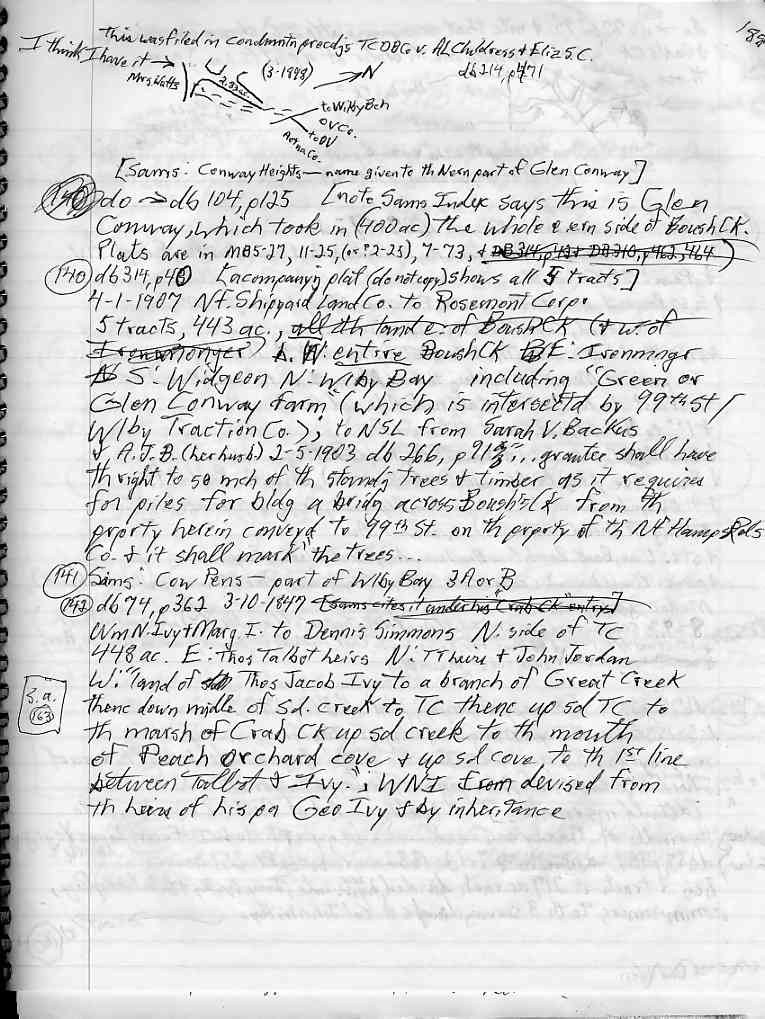 188
This was filed in condmntn precdjs TCDBCo v. AL Childress & Eliz S. C.
I think I have it → (3-1898) → N db 214, p471
Mrs Watts
2.93 ac.
to Wilby Bch
OV Co.
to OV
[Sams: Conway Heights — name given to th Nern part of Glen Conway]
140 do → db 104, p125 [note Sams Index says this is Glen
Conway, which took in (400 ac) the whole e ern side of Boush CK.
Plats are in MB5-27, 11-25, (or ? 2-25), 7-73, + DB 314, p42 + DB 210, p462, 464)
140 db 314, p40 [acompanyin plat (do not copy) shows all 5 tracts]
4-1-1907 Nf. Shippard Land Co. to Rosemont Corp.
5 tracts, 443 ac., all th land e. of Boush CK (& w. of
Irenmonger) W. entire Boush CK E: Irenmngr
S: Widgeon N: Wlby Bay including "Green or
Glen Conway farm" (which is intersectd by 99th St /
Wlby Traction Co.); to NSL from Sarah V. Backus
& A. J. B. (her husb.) 2-5-1903 db 266, p91 ... grantee shall have
th right to so mch of th standg trees & timber as it requires
for piles for bldg a bridg across Boush's Ck from th
prprty herein conveyd to 99th St. on th prprty of th Nf Hamp Rds
Co. & it shall mark the trees...
141 Sams: Cow Pens — part of Wlby Bay 3A or B
142 db 74, p362 3-10-1847 [Sams cites it under his "Crab CK" entrys]
Wm N. Ivy + Marg. I. to Dennis Simmons N. side of TC
448 ac. E: Thos Talbot heirs N: TT heirs + John Jordan
W: "land of Thos Jacob Ivy to a branch of Great Creek
3. a.
163
thenc down midle of sd. creek to TC thenc up sd TC to
th marsh of Crab CK up sd creek to th mouth
of Peach Orchard cove & up sd cove to th 1st line
between Talbot & Ivy."; WNI from devised from
th heirs of his pa Geo Ivy & by inheritance